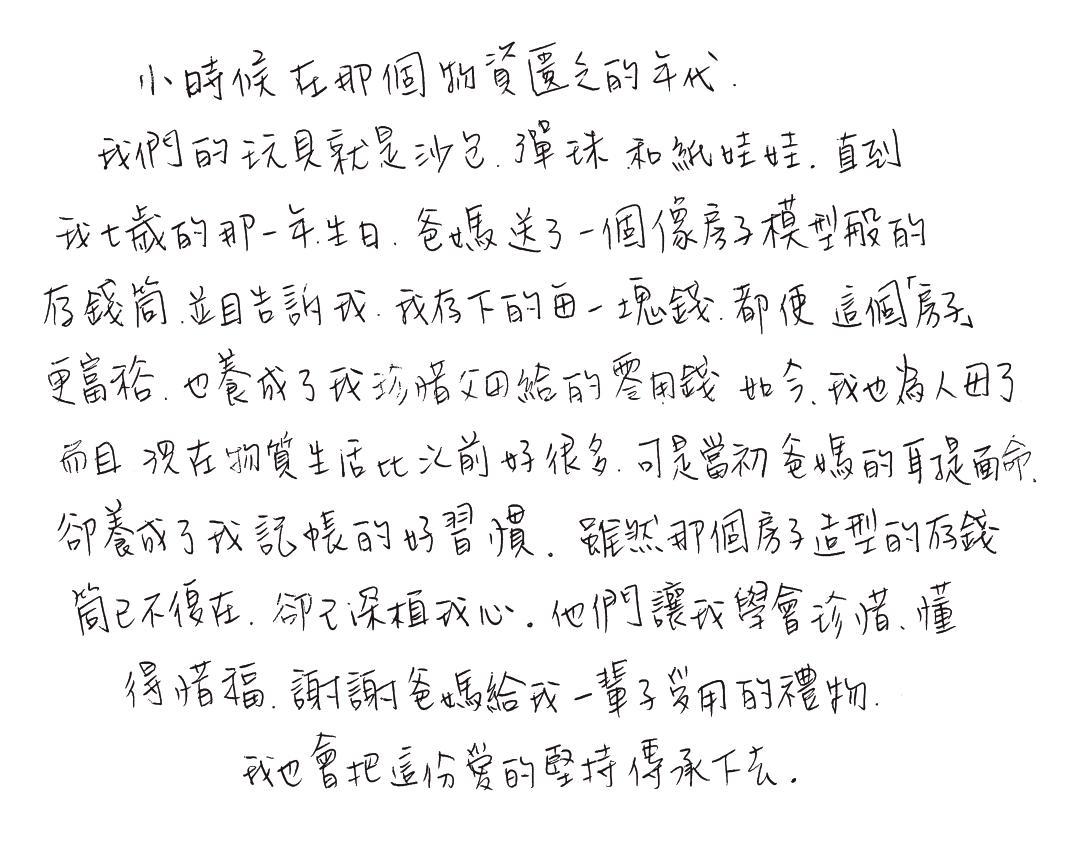 小時候在那個物資匱乏的年代.
我們的玩具就是沙包.彈珠和紙娃娃.直到
我七歲的那一年生日.爸媽送了一個像房子模型般的
存錢筒.並且告訴我.我存下的每一塊錢.都使這個「房子」
更富裕.也養成了我珍惜父母給的零用錢 如今.我也為人母了
而且現在物質生活比以前好很多.可是當初爸媽的耳提面命.
卻養成了我記帳的好習慣.雖然那個房子造型的存錢
筒已不復在.卻已深植我心.他們讓我學會珍惜、懂
得惜福.謝謝爸媽給我一輩子受用的禮物.
我也會把這份愛的堅持傳承下去.